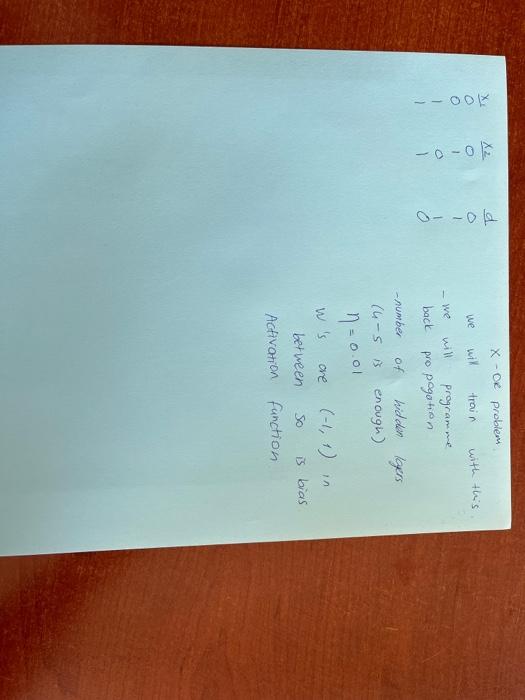 X-OR problem.
x1 x2 d
0 0 0
0 1 1
1 0 1
1 1 0
we will train with this.
- we will programme
back propagation
- number of hidden layers
(4-5 is enough)
η = 0.01
W's are (-1, 1) in
between so is bias
Activation function